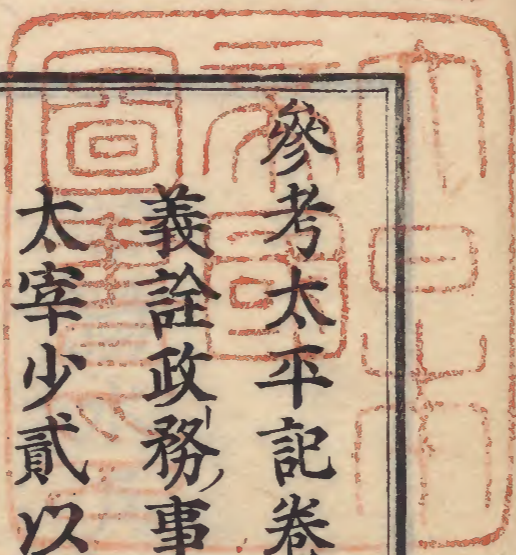 參考太平記卷
義詮政務事
太宰少貳以